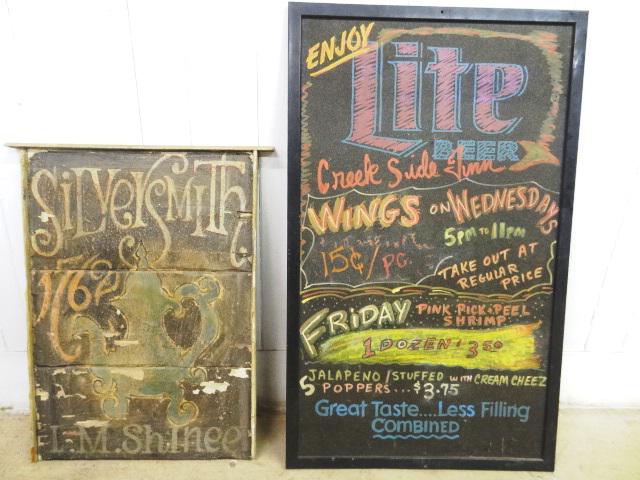 SilverSmith
1762
I.M.Shinee
ENJOY
Lite
BEER
Creek Side Inn
WINGS ON WEDNESDAYS
5PM TO 11PM
15¢/PC.
TAKE OUT AT
REGULAR
PRICE
FRIDAY PINK PICK & PEEL
SHRIMP
1 DOZEN $3.50
5 JALAPENO/STUFFED WITH CREAM CHEEZ
POPPERS...$3.75
Great Taste....Less Filling
COMBINED